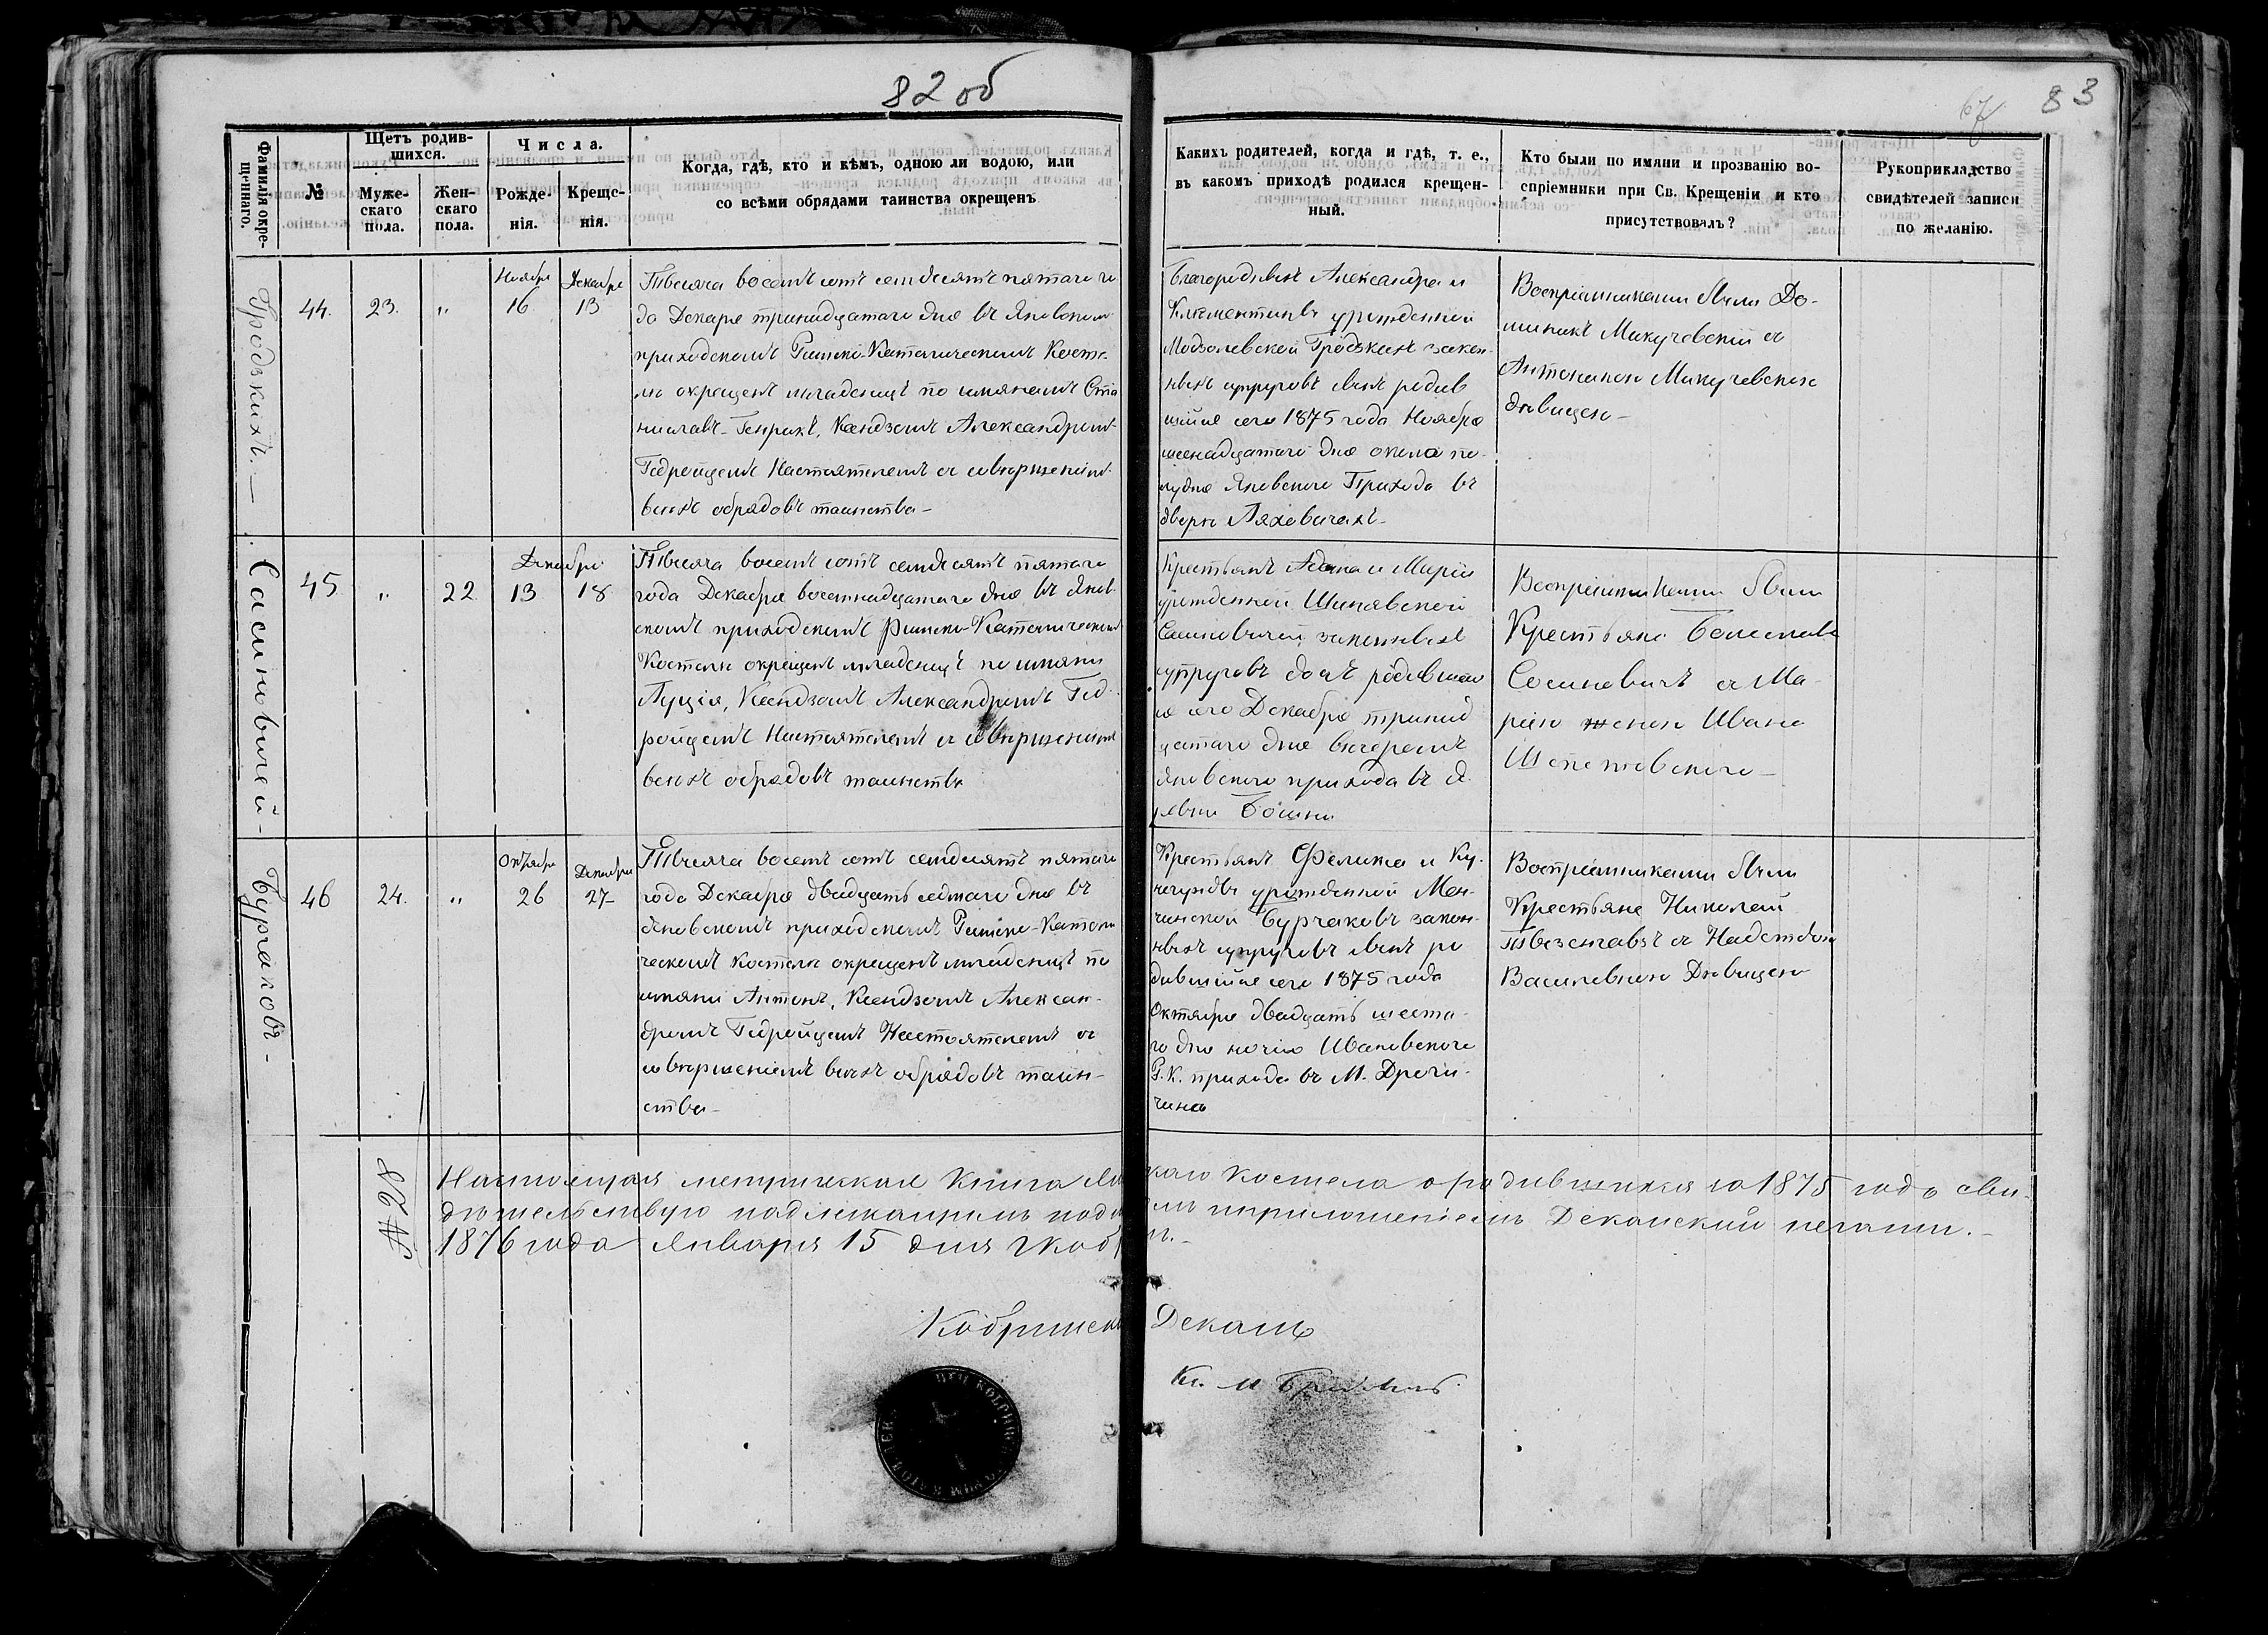 82 об
83
67
Фамилія окре-
щеннаго.
№
Щетъ родив-
шихся.
Муже-
скаго
пола.
Жен-
скаго
пола.
Числа.
Рожде-
нія.
Креще-
нія.
Когда, гдѣ, кто и кѣмъ, одною ли водою, или
со всѣми обрядами таинства окрещенъ
Какихъ родителей, когда и гдѣ, т. е.,
въ какомъ приходѣ родился крещен-
ный.
Кто были по имяни и прозванію во-
спріемники при Св. Крещеніи и кто
присутствовалъ?
Рукоприкладство
свидѣтелей записи
по желанію.
Гродзкихъ. —
44.
23.
„
Ноября
16
Декабря
13
Тысяча восемъ сотъ семдесятъ пятаго го
да Декаря тринадцатаго дня въ Яновскомъ
приходскомъ Римско-Католическомъ Косте-
лѣ окрещенъ младенецъ по имянамъ Ста
ниславъ-Генрикъ, Ксендзомъ Александромъ
Гедройцемъ Настоятелемъ съ совершеніемъ
всѣхъ обрядовъ таинства –
Благородныхъ Александра и
Клементины урожденной
Модзолевской Гродзкихъ закон-
ныхъ супруговъ сынъ родив
шійся сего 1875 года Ноября
шеснадцатаго дня около по-
лудня Яновскаго Прихода въ
дворѣ Ляховичахъ –
Воспріемниками были До-
миникъ Микучевскій съ
Антониною Микучевскою
дѣвицею –
Сасиновичей –
45
„
22
Декабря
13
18
Тысяча восемъ сотъ семдесятъ пятаго
года Декабря восемнадцатаго дня въ Янов-
скомъ приходскомъ Римско-Католическомъ
Костелѣ окрещенъ младенецъ по имяни
Луція, Ксендзомъ Александромъ Гед-
ройцемъ Настоятелемъ съ совершеніемъ
всѣхъ обрядовъ таинства
Крестьянъ Адама и Маріи
урожденной Шинявской
Сасиновичей законныхъ
супруговъ дочь родивша
я сего Декабря тринад
цатаго дня вечеромъ
Яновскаго прихода въ д.
ревни
Воспріемниками были
Крестьяне Болеславъ
Сосиновичъ съ Ма-
ріею женою Ивана
Шепетовскаго –
Бурчаковъ –
46
24.
„
Октября
26
Декабря
27
Тысяча восемъ сотъ семдесятъ пятаго
года Декабря двадцать седмаго дня въ
Яновскомъ приходскомъ Римско-Католи
ческомъ Костелѣ окрещенъ младенецъ по
имяни Антонъ, Ксендзомъ Алексан-
дромъ Гедройцемъ Настоятелемъ съ
совершеніемъ всѣхъ обрядовъ таин-
ства –
Крестьянъ Феликса и Ку-
негунды урожденной Мен-
чинской Бурчаковъ закон-
ныхъ супруговъ сынъ ро
дившійся сего 1875 года
Октября двадцать шеста-
го дня ночью Ивановскаго
Р. К. прихода въ М. Дроги-
чинѣ
Воспріемниками были
Крестьяне Николай
съ
Василевною Дѣвицею
№ 28
Настоящая метрическая Книга каго костела о родившихся за 1875 годъ сви-
дѣтельствую надлежащимъ и приложеніемъ Деканской печати. –
1876 года Января 15 дня
Кобринскій Деканъ
Кс. М